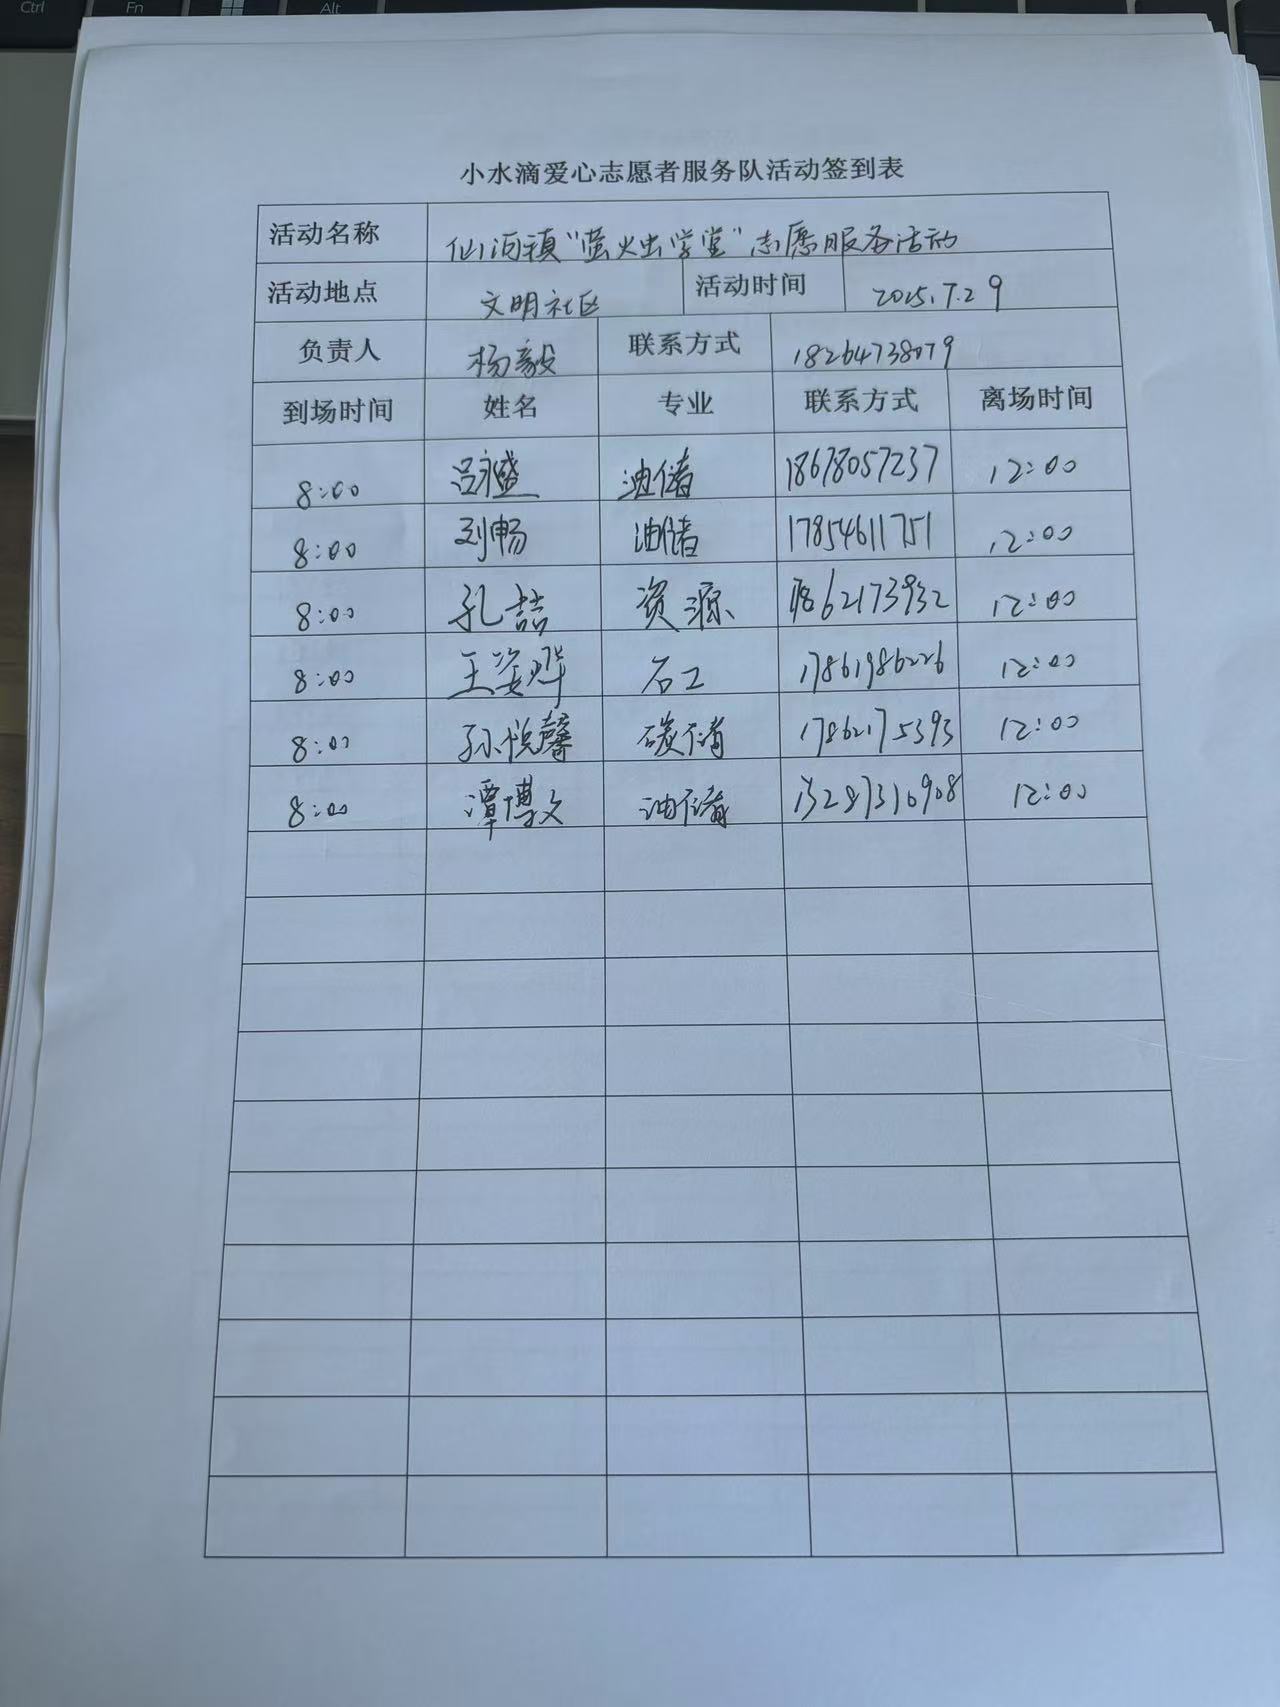 Ctrl Fn Alt
小水滴爱心志愿者服务队活动签到表
活动名称 仙河镇“萤火虫学堂”志愿服务活动
活动地点 文明社区 活动时间 2025.7.29
负责人 杨毅 联系方式 18264738079
到场时间 姓名 专业 联系方式 离场时间
8:00 吕永盛 油储 18678057237 12:00
8:00 刘畅 油储 17854611751 12:00
8:00 孔喆 资源 17862173932 12:00
8:00 王姿烨 石工 17861986226 12:00
8:00 孙悦馨 碳储 17862175393 12:00
8:00 潭博文 油储 13287310908 12:00